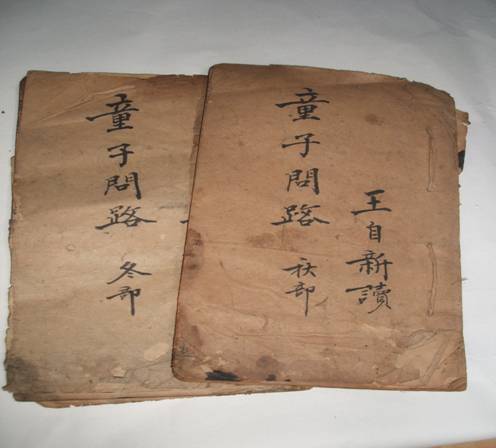 童子問路
冬部
童子問路
秋部
王自新讀